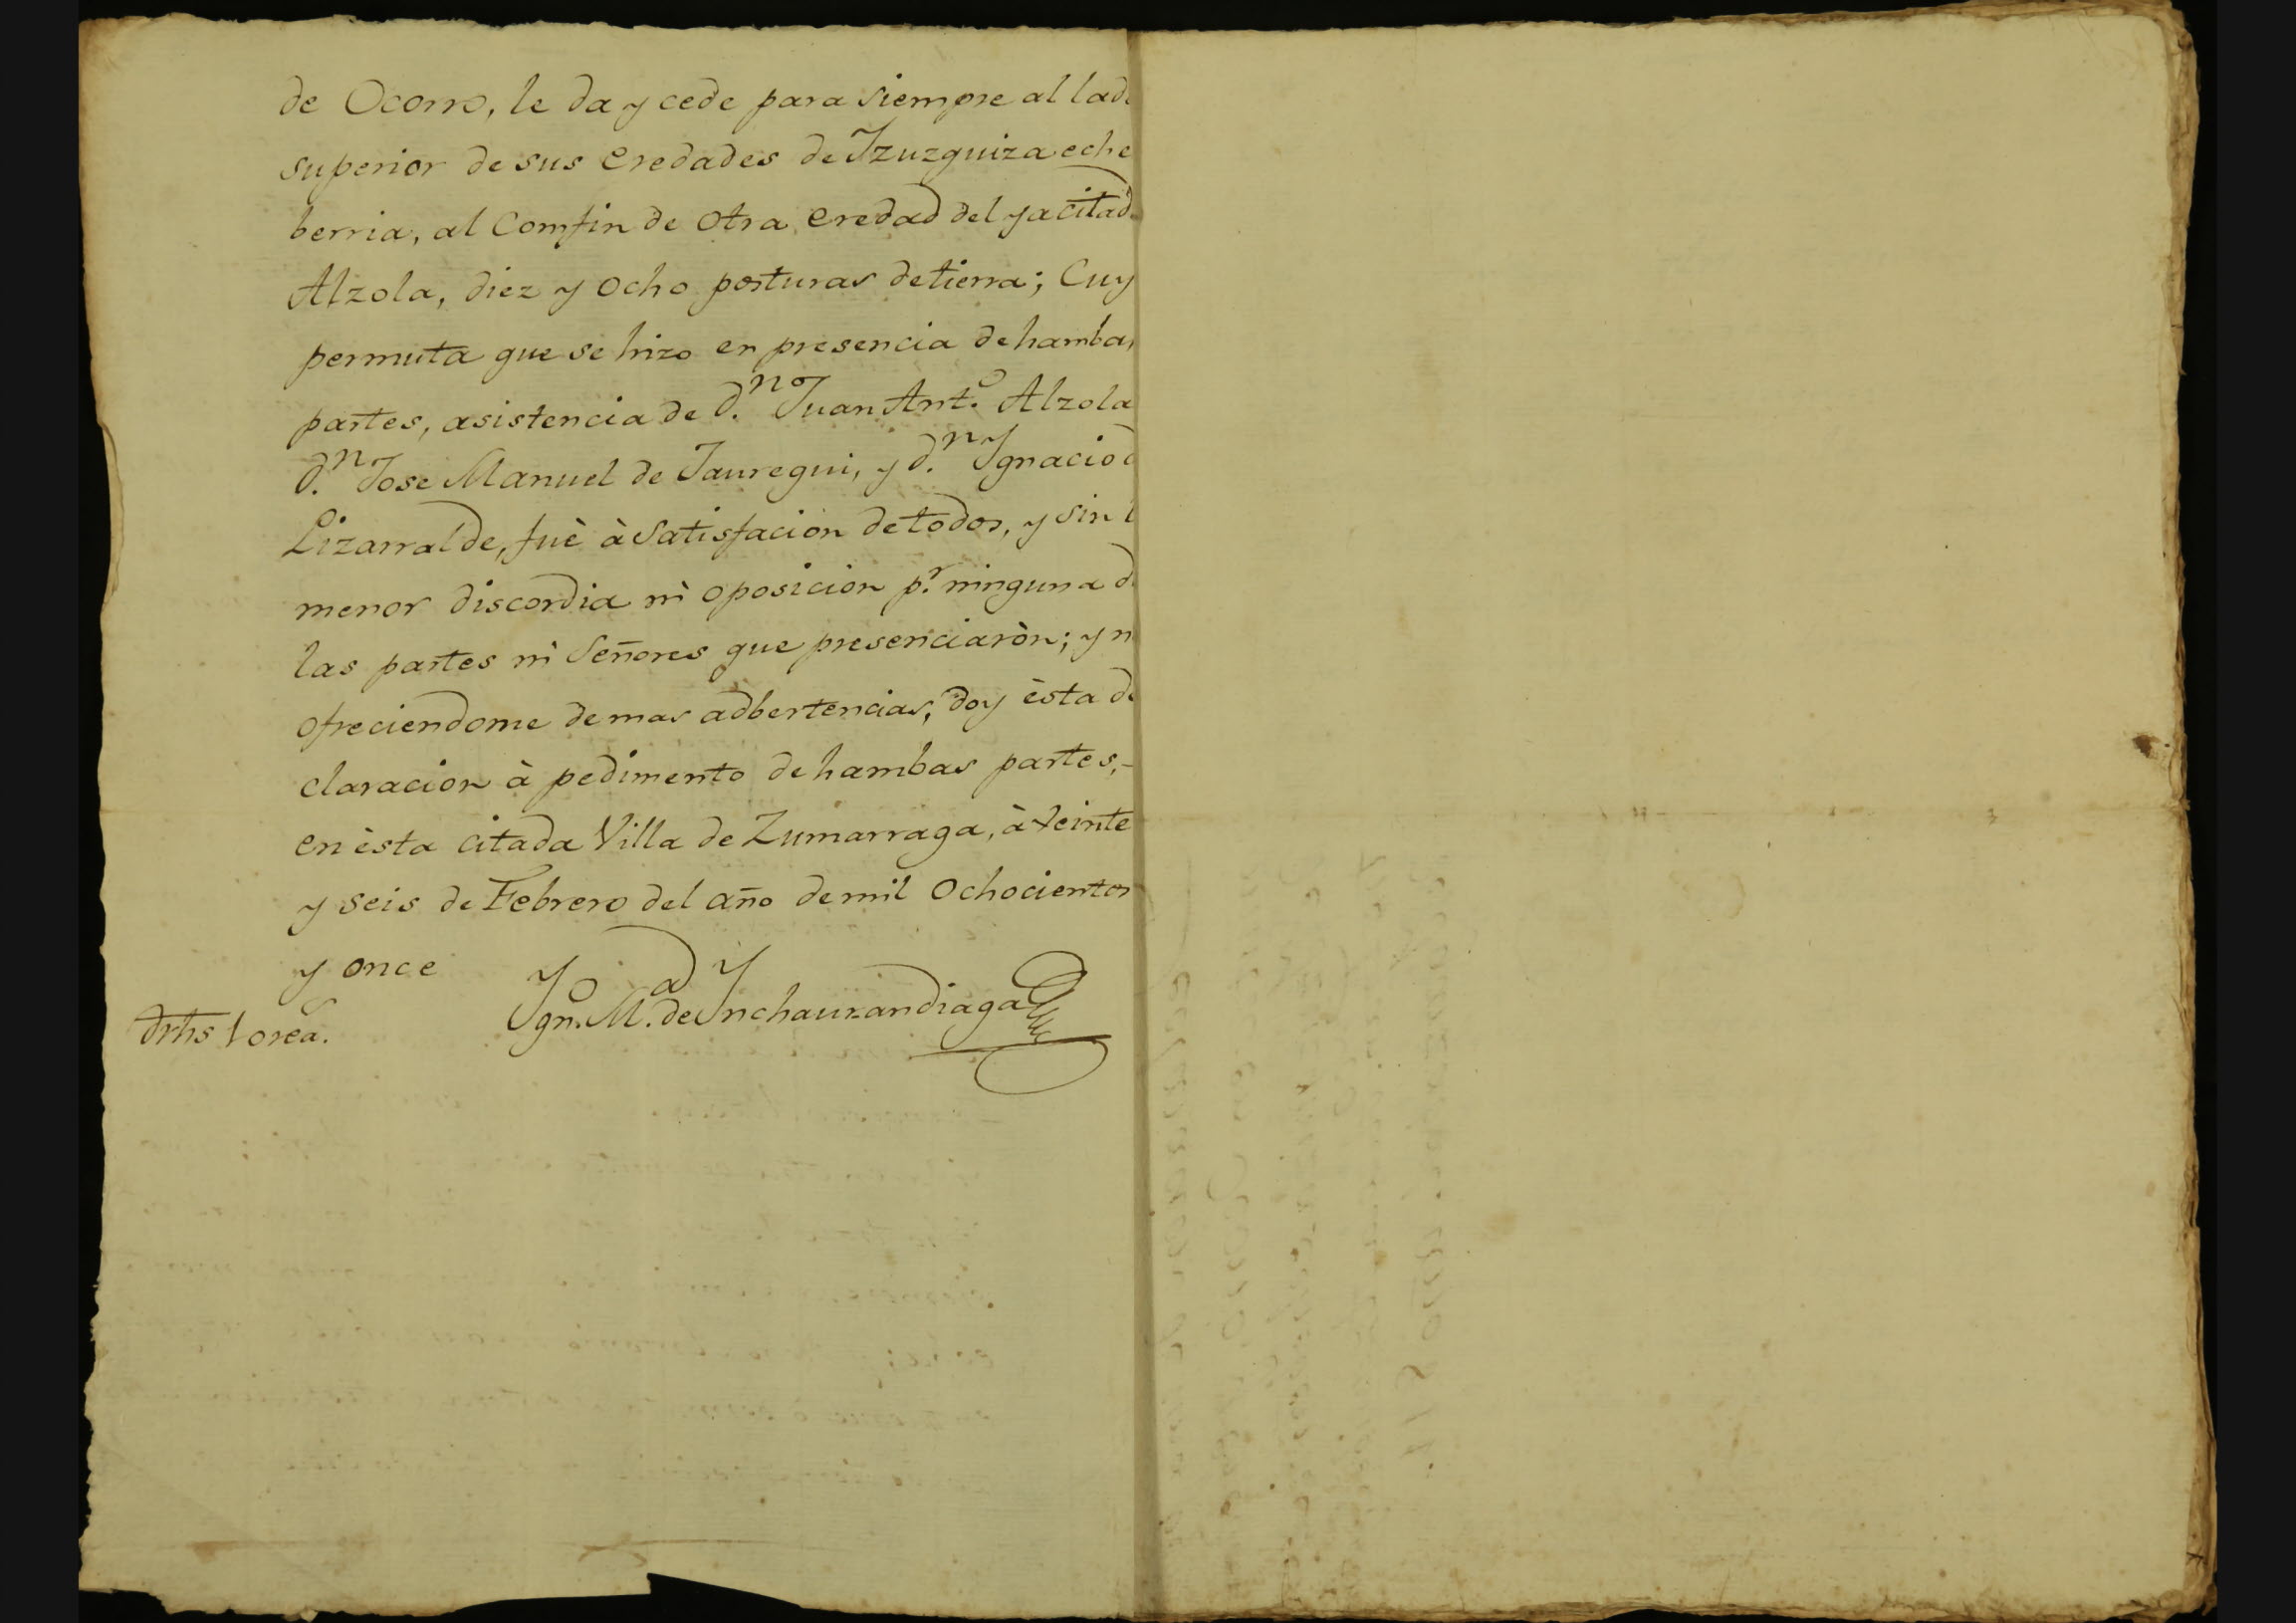 de Ocorro, le da y cede para siempre al lad
superior de sus eredades de Yzuzguiza eche
berria, al Comfin de otra eredad del ya citad
Alzola, diez y ocho posturas de tierra; Cuy
permuta que se hizo en presencia de hamba
partes, asistencia de d.n Juan Ant.o Alzola
d.n Jose Manuel de Jauregui, y d.n Ygnacio d
Lizarralde, fuè à satisfacion de todos, y sin l
menor discordia nì oposicion p.r ninguna d
las partes nì Señores que presenciaròn; y n
ofreciendome de mas adbertencias, doy èsta de
claracion à pedimento de hambas partes,-
en èsta citada Villa de Zumarraga, à veinte
y seis de Febrero del año de mil ochocientos
y once
Ygn.o M.a de Ynchaurandiaga